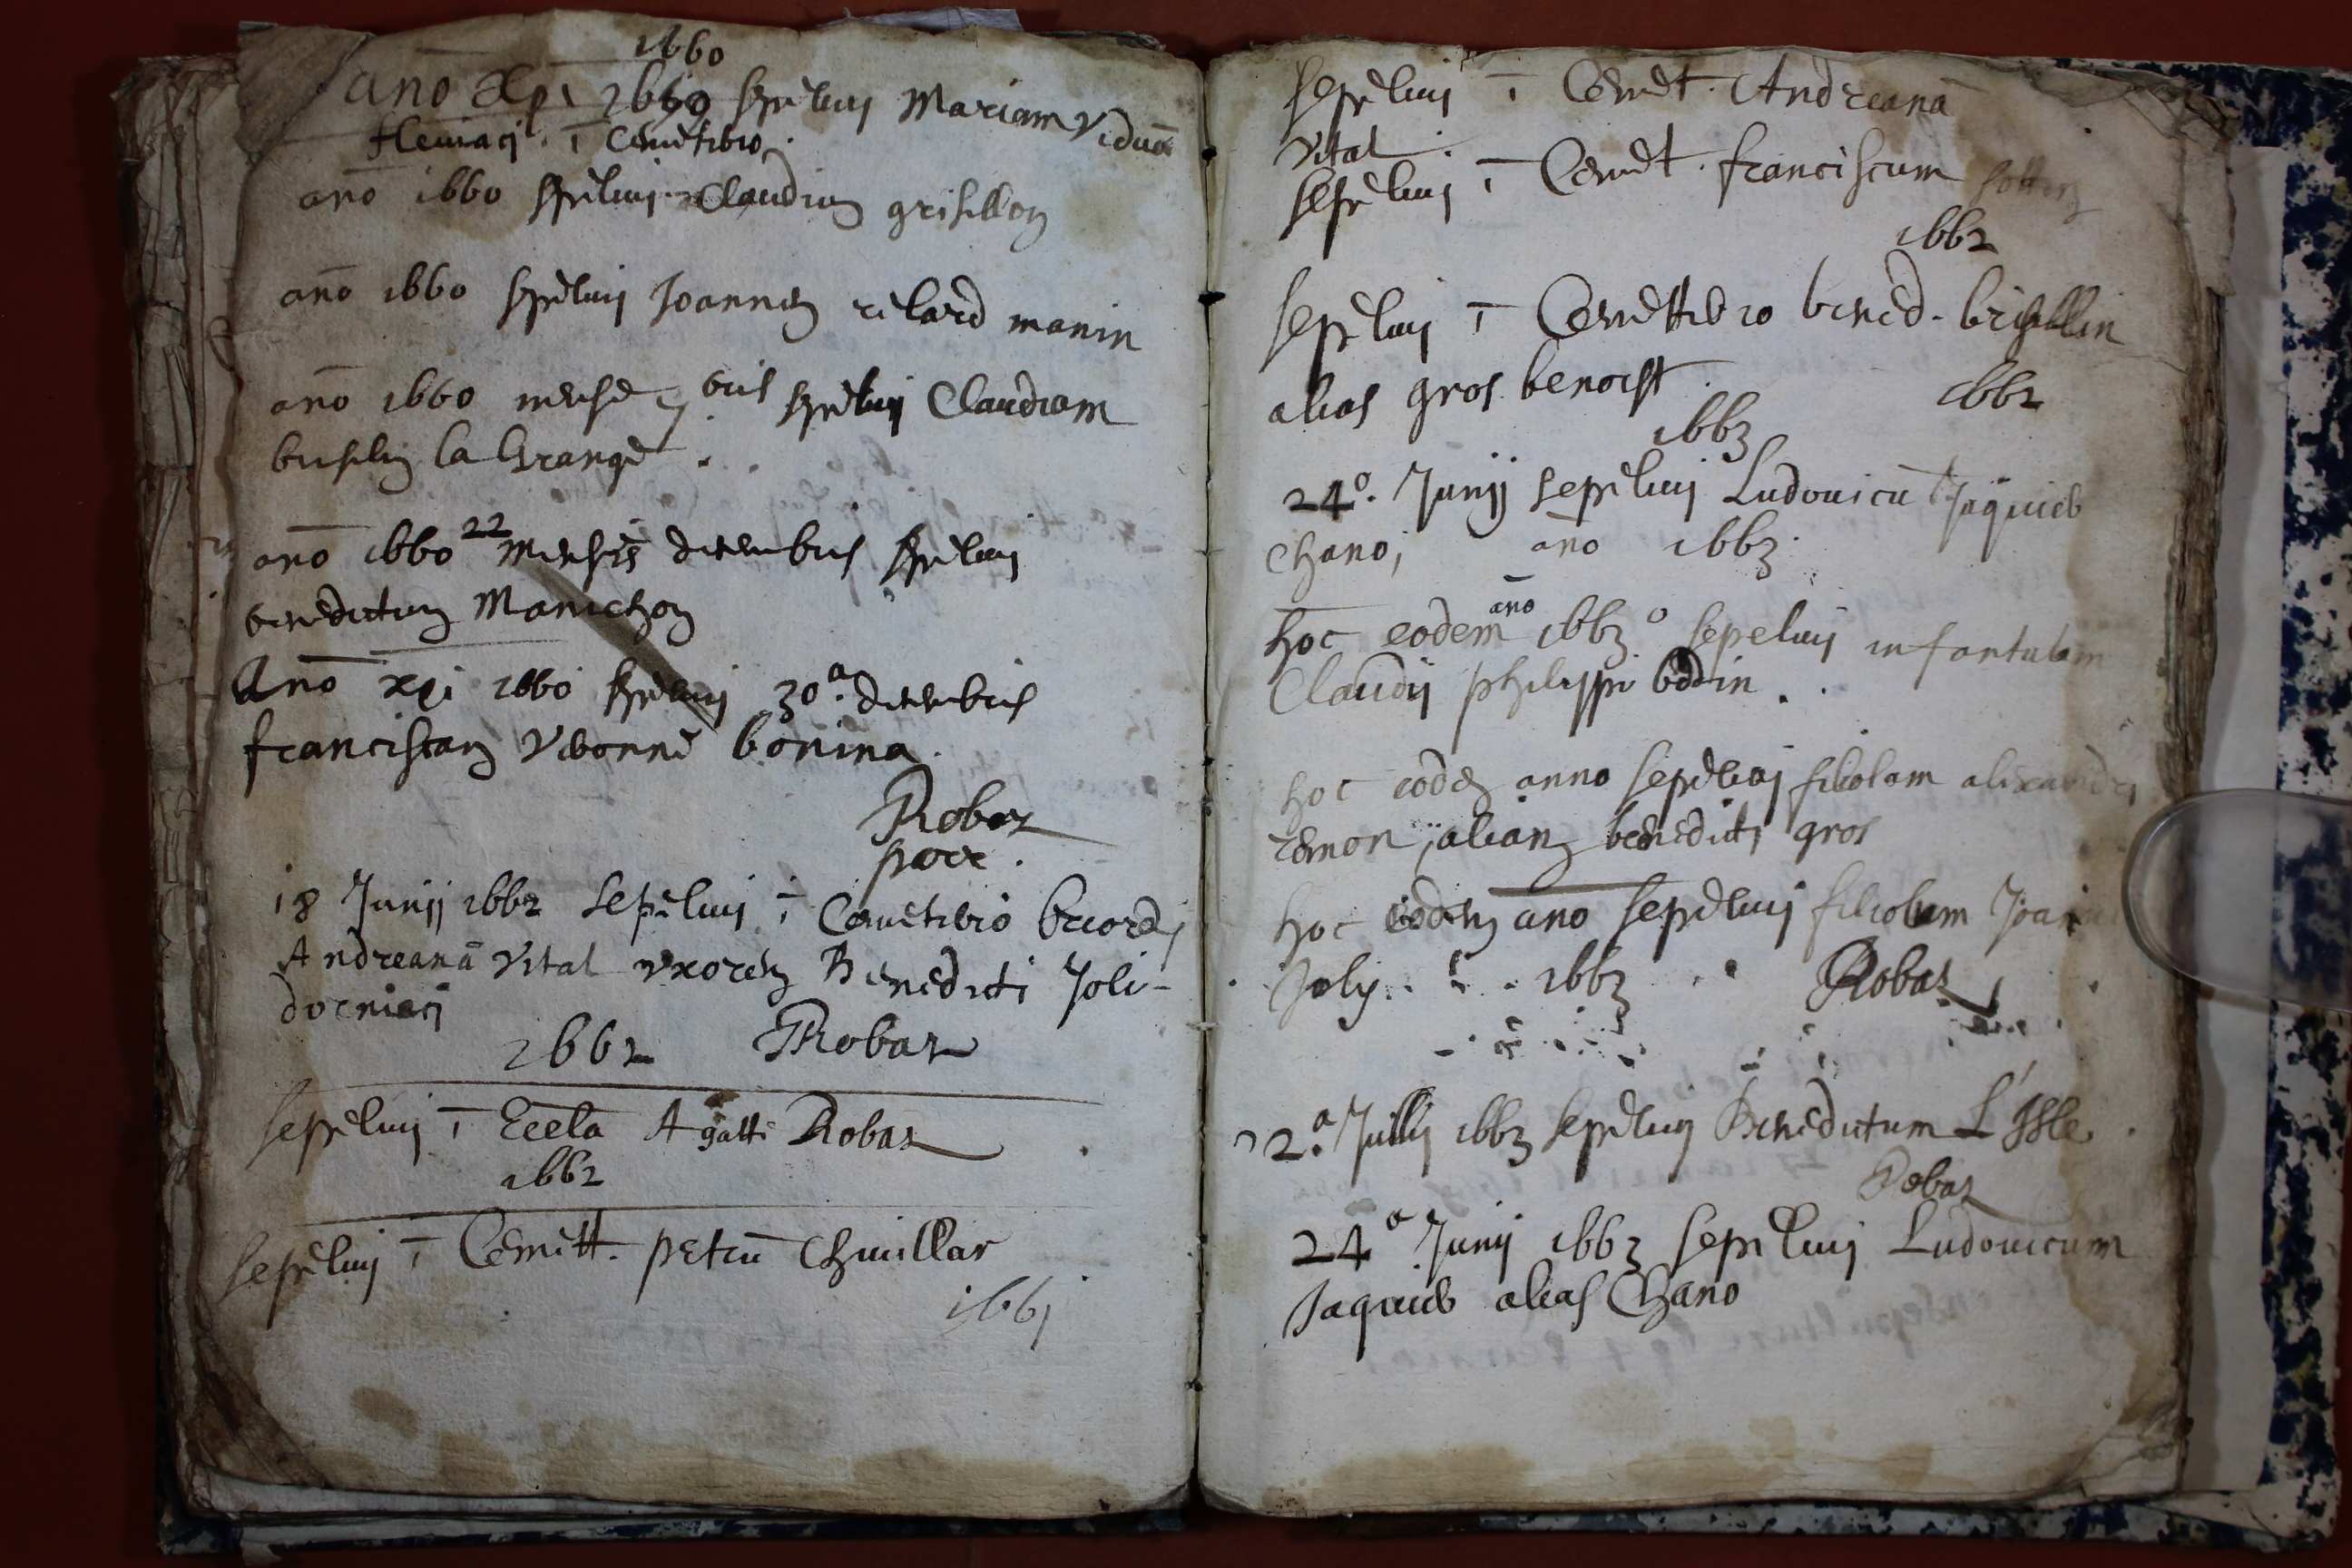 1660
año Xpi 1660 sepelivi Mariam viduā
fleuriacj ī Cemeterio.
año 1660 sepelivj Claudium grisillon
año 1660 sepelivj Joannem relard manin
año 1660 mense 7 bris sepelivj Claudiam
brisilin la Grange.
año 1660 22 mensis decembris sepelivj
benedictum Manichon
Año xpi 1660 sepelivj 30a. decembris
franciscam bonina.
Robaz
parr.
18 Junij 1662 sepelivj ī Cemeterio briordj
Andreanā Vital uxorem Benedicti Joli-
docniacj
1662 Robaz
sepelivj ī Eccla Agatti Robaz
1662
sepelivj ī Cemett. petrū Chuillar
1661
sepelivj ī Cemet. Andreanā
Vital.
sepelivj ī Cemet. franciscum
1662
sepelivj ī Cemetterio bened. brisillin
alias gros benoist. 1662
1663
24o. Junij sepelivj Ludovicū Jaquieb
Chano; año 1663.
hoc eodem año 1663o sepelivj infantulam
Claudij philippi bodin.
hoc eodem anno sepelivj filiolam alixandri
remon, aliam benedicti gros
hoc eodem año sepelivj filiolam
Joly. 1663 Robaz
22a. Jullij 1663 sepelivj Benedictum L'Isle.
Robaz
24a Junij 1663 sepelivj Ludovicum
Jaquieb alias Chano